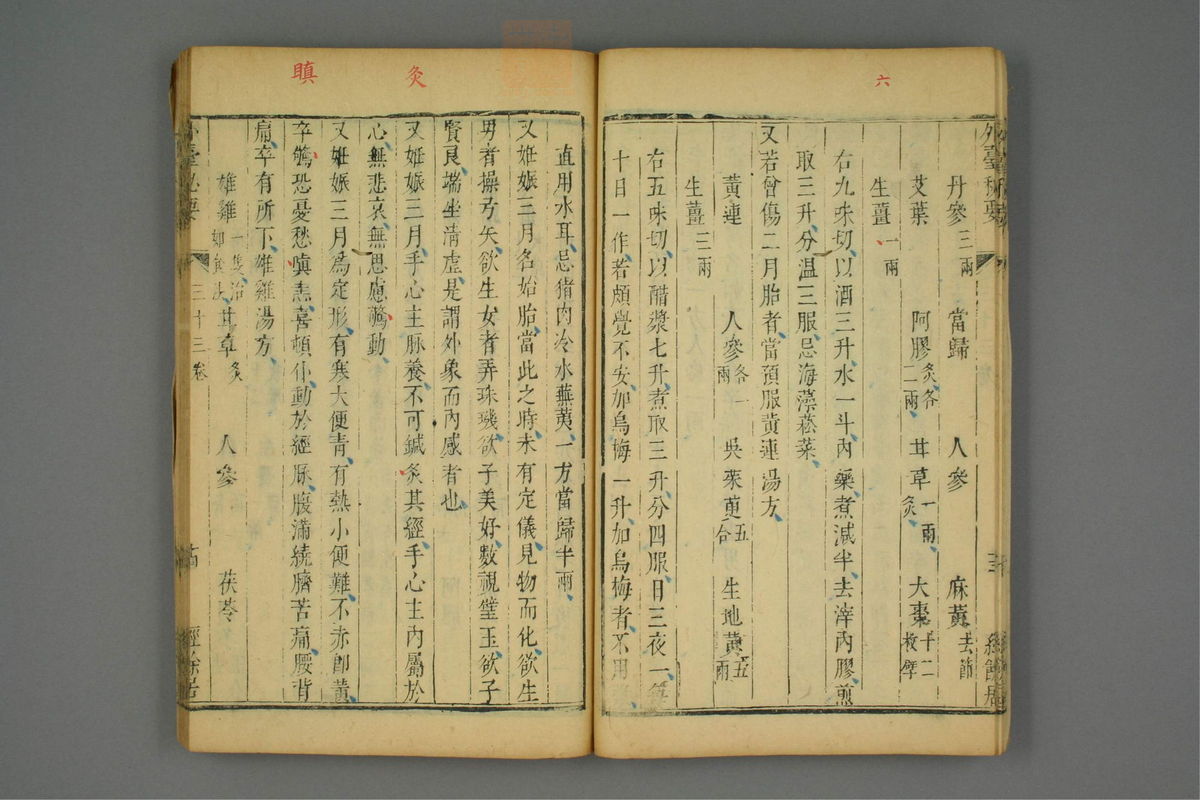 六
外臺秘要
丹參三兩 當歸 人參 麻黃去節
艾葉 阿膠炙各二兩 甘草一兩炙 大棗十二枚擘
生薑一兩
右九味切以酒三升水一斗內藥煮減半去滓內膠煎
取三升分溫三服忌海藻菘菜
又若曾傷二月胎者當預服黃連湯方
黃連 人參各一兩 吳茱萸五合 生地黃五兩
生薑三兩
右五味切以醋漿七升煮取三升分四服日三夜一
十日一作若頗覺不安加烏梅一升加烏梅者不用
灸
瞋
直用水耳忌猪肉冷水蕪荑一方當歸半兩
又妊娠三月名始胎當此之時未有定儀見物而化欲生
男者操弓矢欲生女者弄珠璣欲子美好數視璧玉欲子
賢良端坐清虛是謂外象而內感者也
又妊娠三月手心主脉養不可鍼灸其經手心主內屬於
心無悲哀無思慮驚動
又妊娠三月為定形有寒大便青有熱小便難不赤卽黃
卒驚恐憂愁嗔恚喜頓仆動於經脉腹滿繞臍苦痛腰背
痛卒有所下雄雞湯方
雄雞一隻治如食法 甘草炙 人參 茯苓
外臺秘要 三十三卷 經餘居